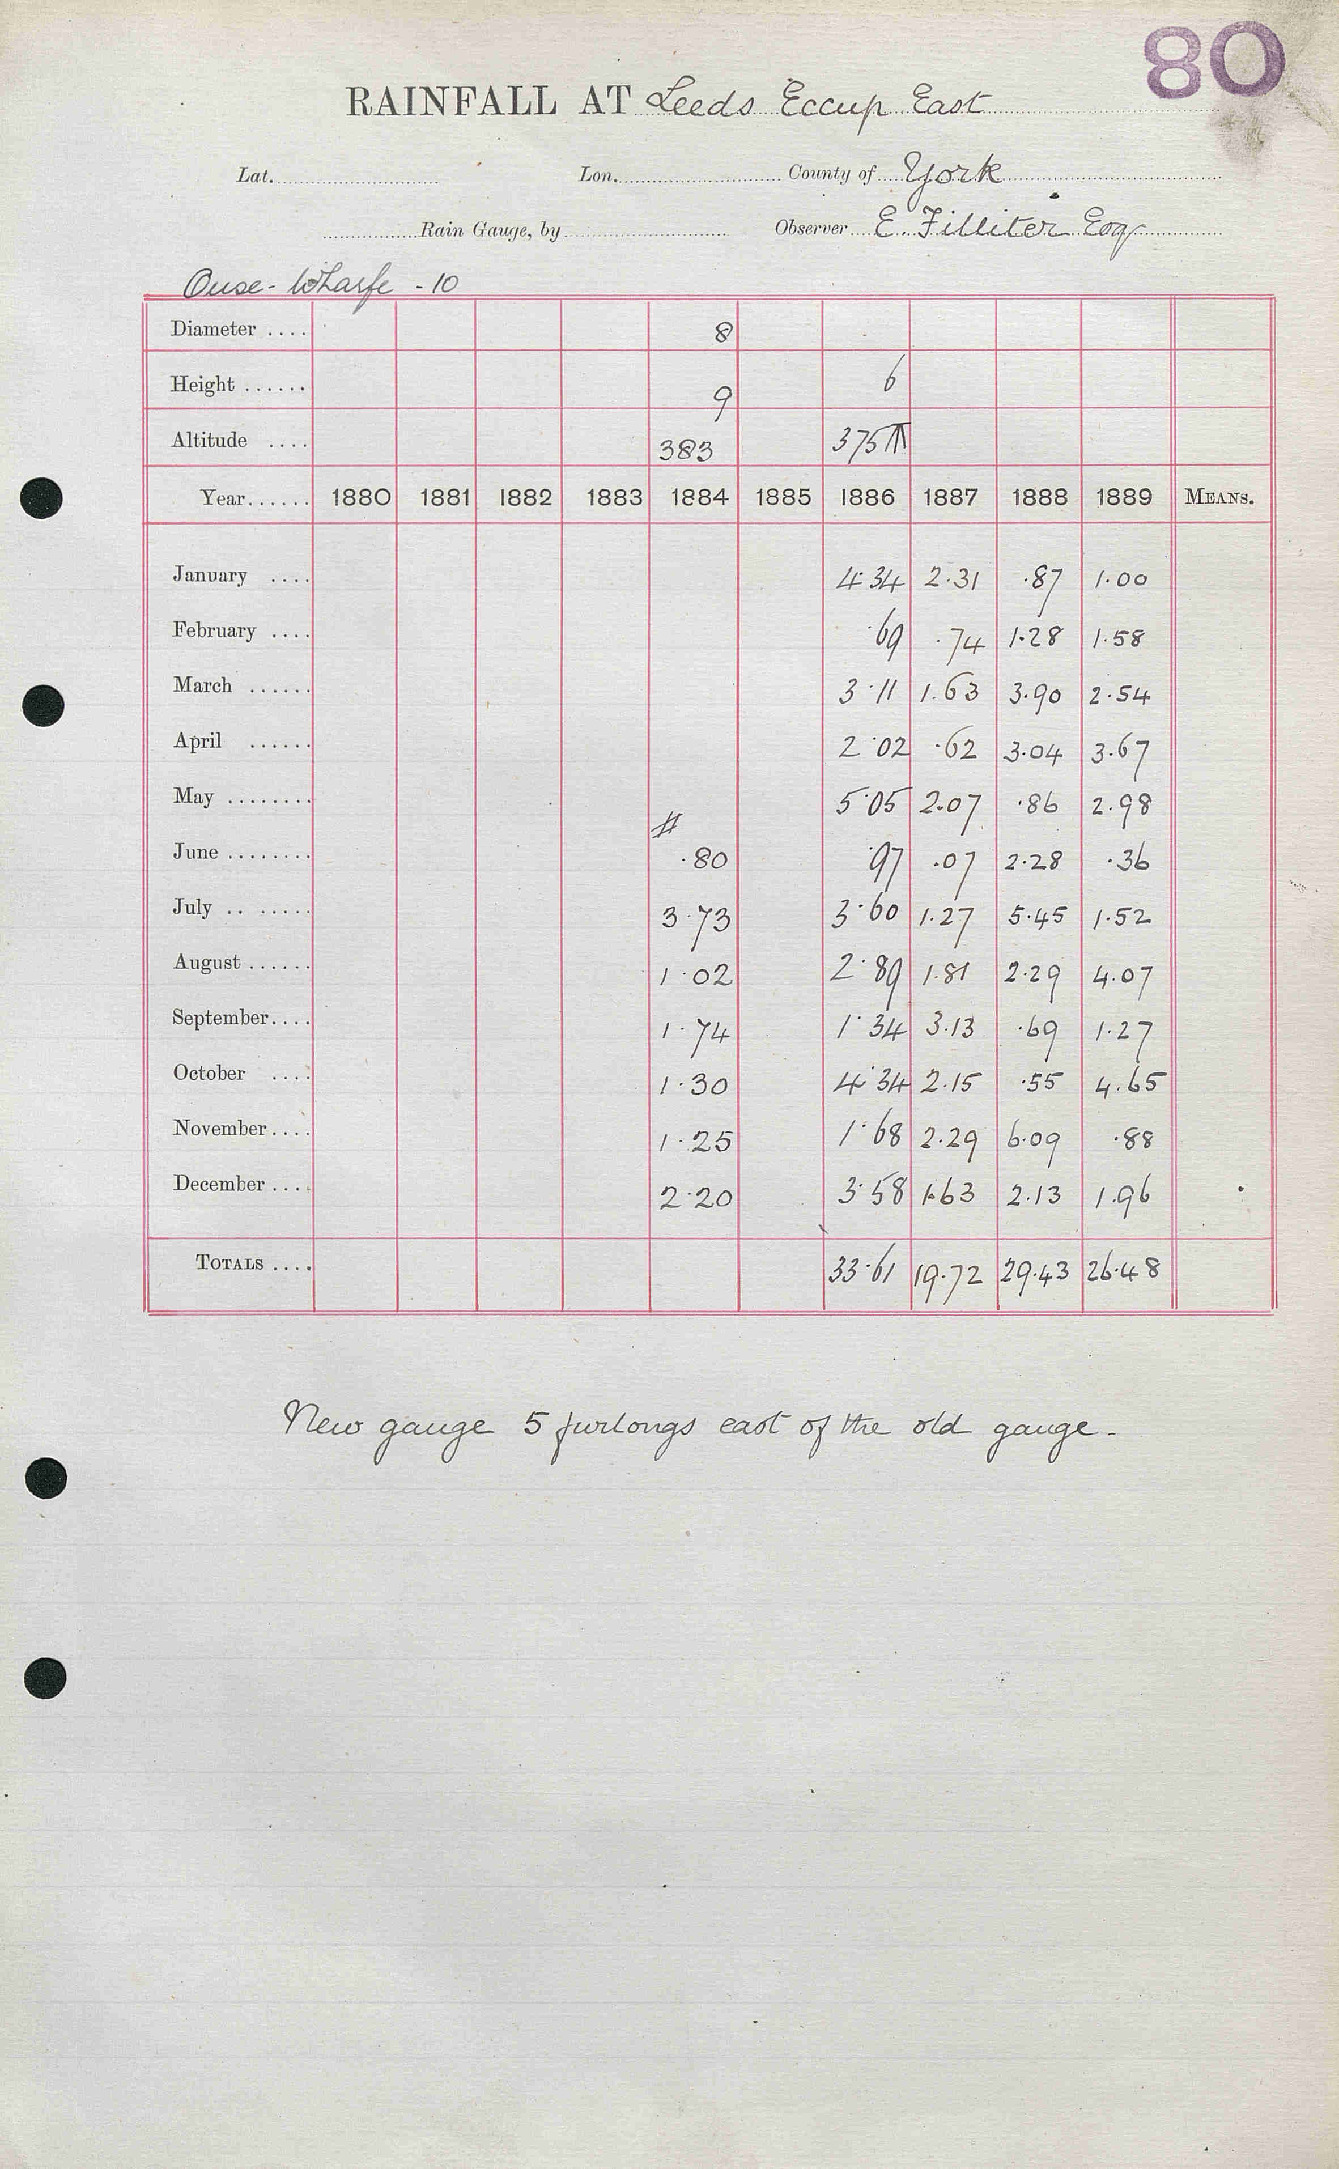 80
RAINFALL AT Leeds Eccup East
Lat. Lon. County of York
Rain Gauge, by Observer E. Filliter Esq
Ouse - Wharfe - 10
Diameter .... 8
Height ...... 9 6
Altitude .... 383 375
Year...... 1880 1881 1882 1883 1884 1885 1886 1887 1888 1889 MEANS.
January .... 4.34 2.31 .87 1.00
February .... .69 .74 1.28 1.58
March ...... 3.11 1.63 3.90 2.54
April ...... 2.02 .62 3.04 3.67
May ........ 5.05 2.07 .86 2.98
#
June ........ .80 .97 .07 2.28 .36
July .. ..... 3.73 3.60 1.27 5.45 1.52
August ...... 1.02 2.89 1.81 2.29 4.07
September.... 1.74 1.34 3.13 .69 1.27
October .... 1.30 4.34 2.15 .55 4.65
November.... 1.25 1.68 2.29 6.09 .88
December .... 2.20 3.58 1.63 2.13 1.96
TOTALS .... 33.61 19.72 29.43 26.48
New gauge 5 furlongs east of the old gauge.